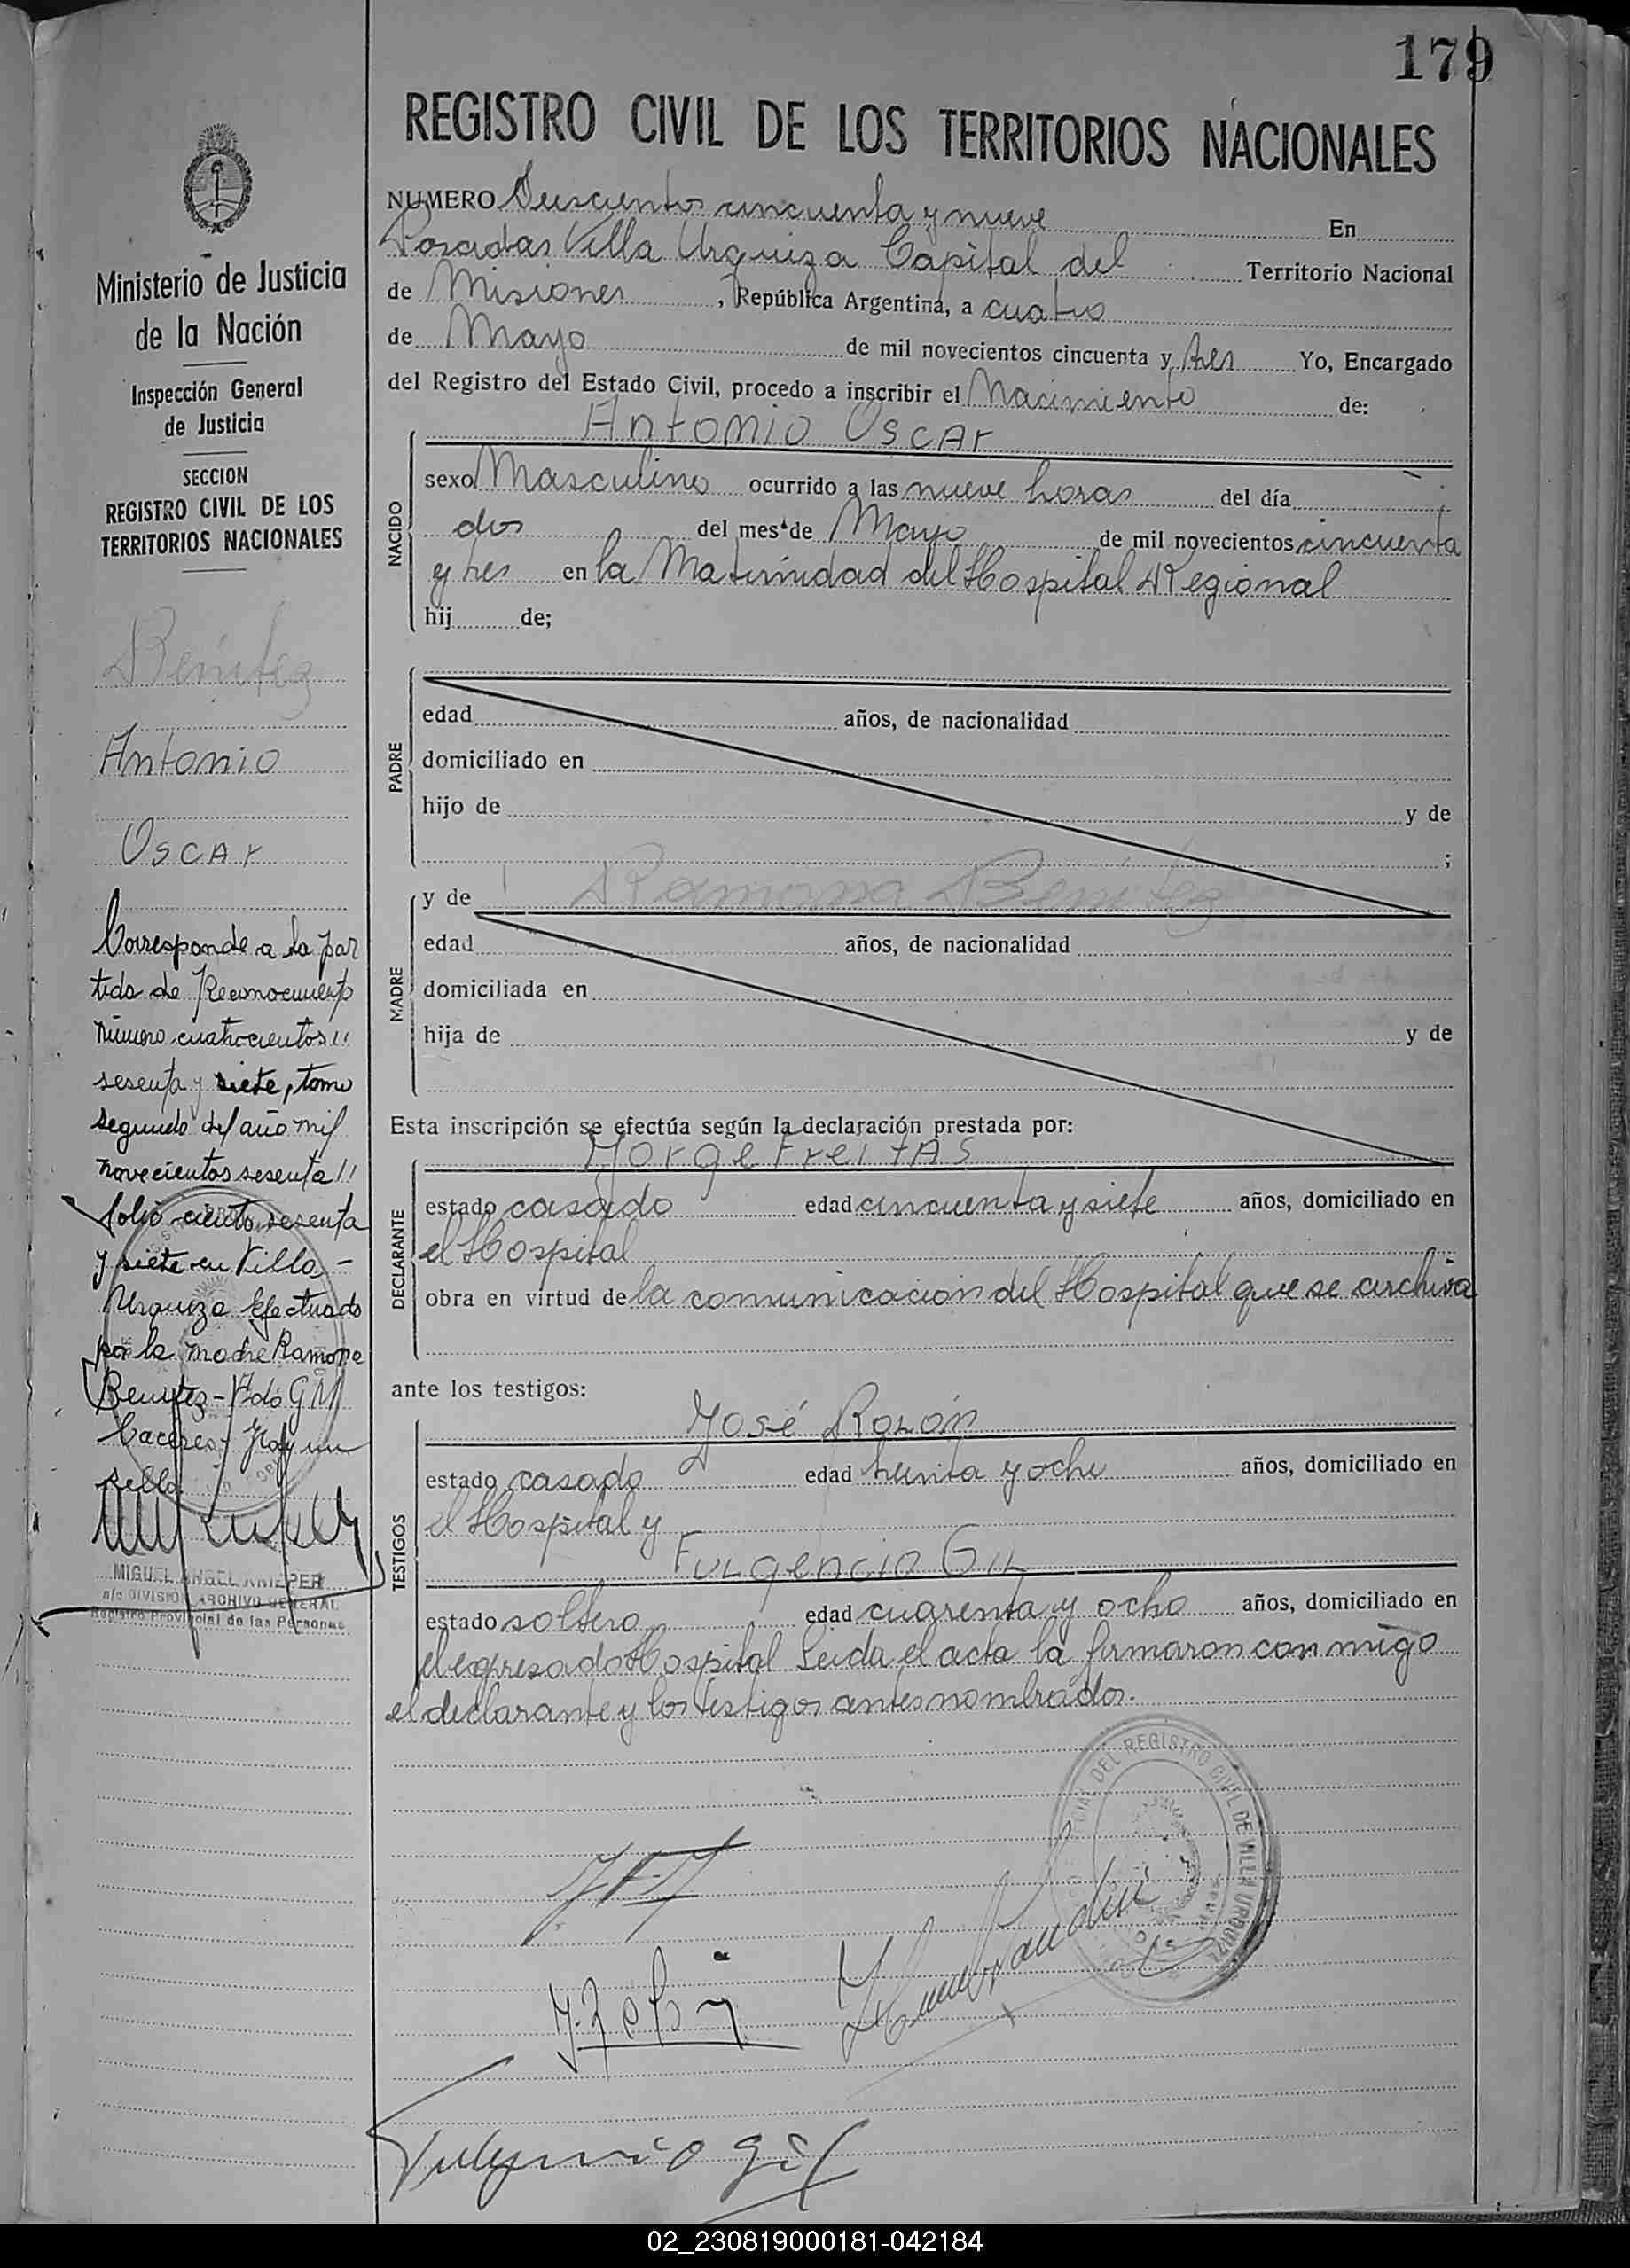 179
REGISTRO CIVIL DE LOS TERRITORIOS NACIONALES
NUMERO Duscientos cincuenta y nueve En
Posadas Villa Urquiza Capital del Territorio Nacional
de Misiones, República Argentina, a cuatro
de Mayo de mil novecientos cincuenta y tres Yo, Encargado
del Registro del Estado Civil, procedo a inscribir el Nacimiento de:
Antonio Oscar
NACIDO
sexo Masculino ocurrido a las nueve horas del día
dos del mes de Mayo de mil novecientos cincuenta
y tres en la Maternidad del Hospital Regional
hij de;
PADRE
edad años, de nacionalidad
domiciliado en
hijo de y de
;
MADRE
y de Ramona Benítez
edad años, de nacionalidad
domiciliada en
hija de y de
Esta inscripción se efectúa según la declaración prestada por:
Jorge Freitas
DECLARANTE
estado casado edad cincuenta y siete años, domiciliado en
el Hospital
obra en virtud de la comunicacion del Hospital que se archiva
ante los testigos:
TESTIGOS
José Rolón
estado casado edad treinta y ocho años, domiciliado en
el Hospital y
Fulgencio Gil
estado soltero edad cuarenta y ocho años, domiciliado en
el expresado Hospital Leida el acta la firmaron con migo
el declarante y los testigos antes nombrados.
Fulgencio Gil
DEL REGISTRO CIVIL DE VILLA URQUIZA
Ministerio de Justicia
de la Nación
Inspección General
de Justicia
SECCION
REGISTRO CIVIL DE LOS
TERRITORIOS NACIONALES
Benítez
Antonio
Oscar
Corresponde a la par
tida de Reconocimiento
número cuatrocientos
sesenta y siete, tomo
segundo del año mil
novecientos sesenta
folio ciento sesenta
y siete en Villa -
Urquiza Efectuado
por la madre Ramona
Benitez - Fdo G M
Caceres - Hay un
sello
MIGUEL ANGEL
a/c DIVISION ARCHIVO GENERAL
Registro Provincial de las Personas
02_230819000181-042184